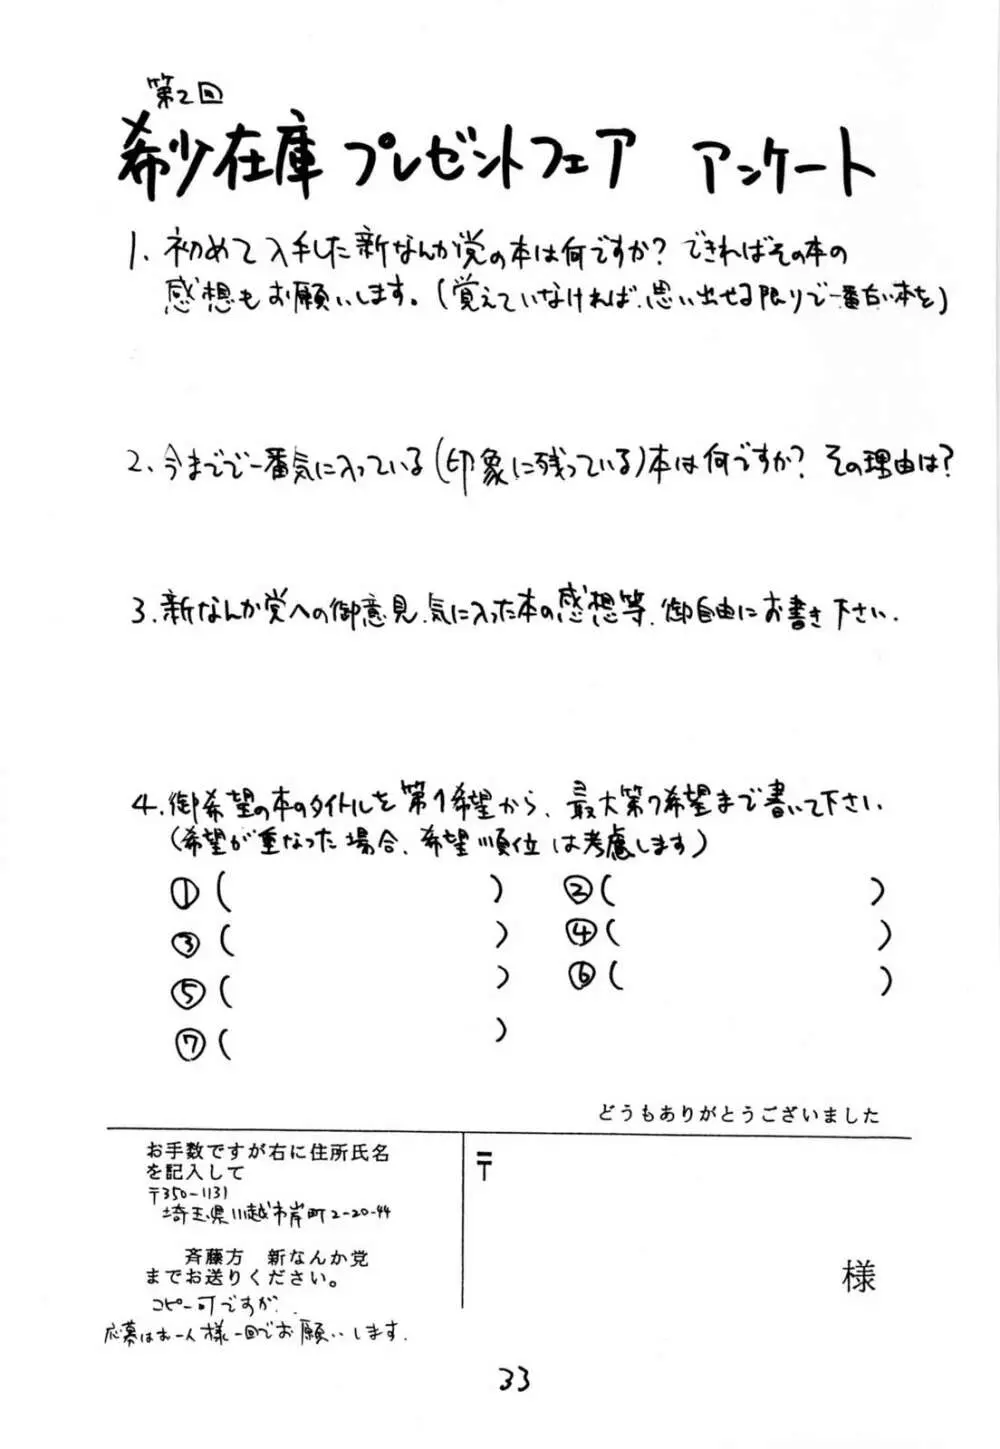 第2回
希少在庫プレゼントフェア　アンケート
1. 初めて入手した新なんか党の本は何ですか? できればその本の
感想もお願いします。(覚えていなければ、思い出せる限りで一番古い本を)
2、今までで一番気に入っている(印象に残っている)本は何ですか? その理由は?
3. 新なんか党への御意見、気に入った本の感想等、御自由にお書き下さい.
4. 御希望の本のタイトルを第1希望から、最大第7希望まで書いて下さい
(希望が重なった場合、希望順位は考慮します)
①(　　　) ②(　　　)
③(　　　) ④(　　　)
⑤(　　　) ⑥(　　　)
⑦(　　　)
どうもありがとうございました
お手数ですが右に住所氏名
を記入して
〒350-1131
埼玉県川越市岸町2-20-44
斉藤方　新なんか党
までお送りください。
コピー可ですが、
応募はお一人様一回でお願いします.
〒
様
33